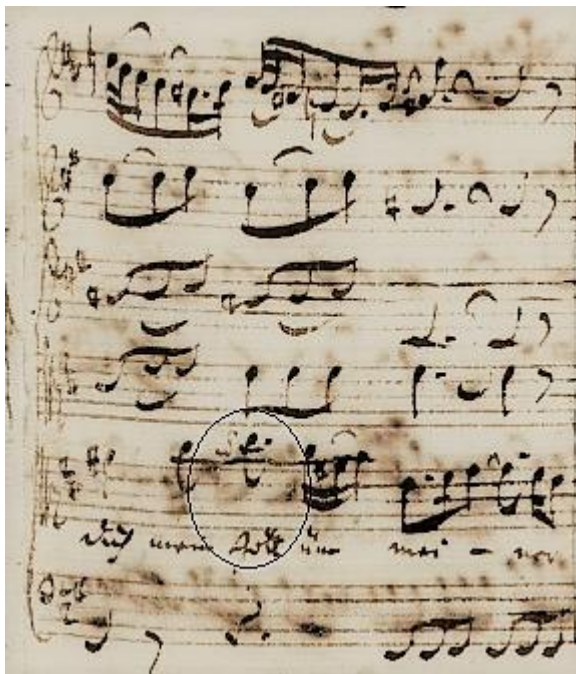 dich mein Gott üm mei - ner